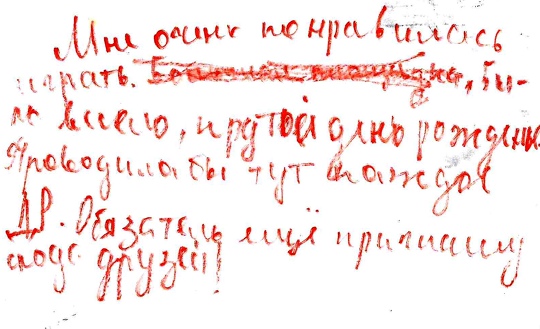 Мне очень понравилась
играть. Большая площадка, бы-
ло весело, крутой день рождения.
Проводила бы тут каждое
ДР. Обязатель ещё приглашу
сюда друзей!